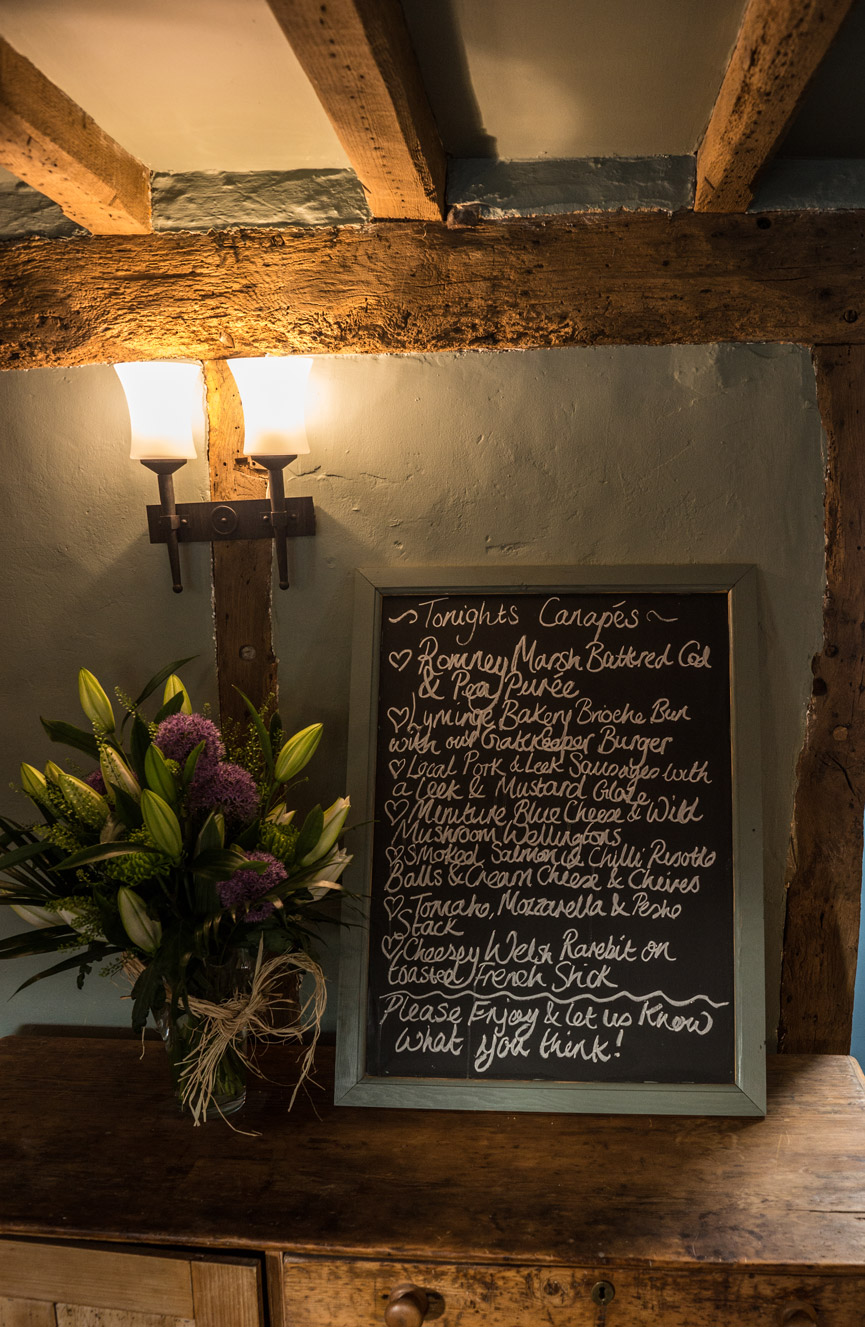 ~ Tonights Canapés ~
♡ Romney Marsh Battered Cod
& Pea Purée
♡ Lyminge Bakery Brioche Bun
with our Gatekeeper Burger
♡ Local Pork & Leek Sausages with
a Leek & Mustard Glaze
♡ Miniture Blue Cheese & Wild
Mushroom Wellingtons
♡ Smoked Salmon & Chilli Risotto
Balls & Cream Cheese & Chives
♡ Tomato, Mozzarella & Pesto
Stack
♡ Cheesey Welsh Rarebit on
toasted French Stick
Please Enjoy & let us Know
what you think!